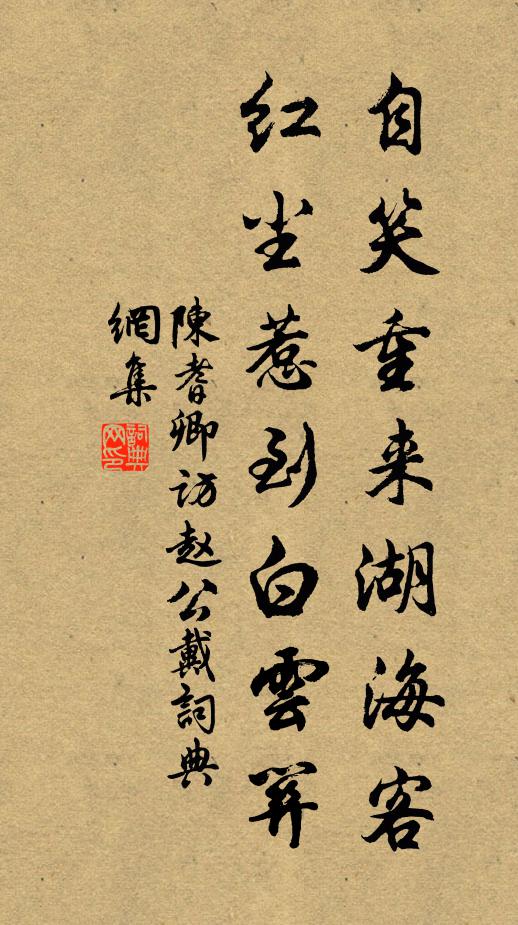 自笑重来湖海客
红尘惹到白雲箳
陳耆卿访赵公戴詞典
網集
詞典
网印